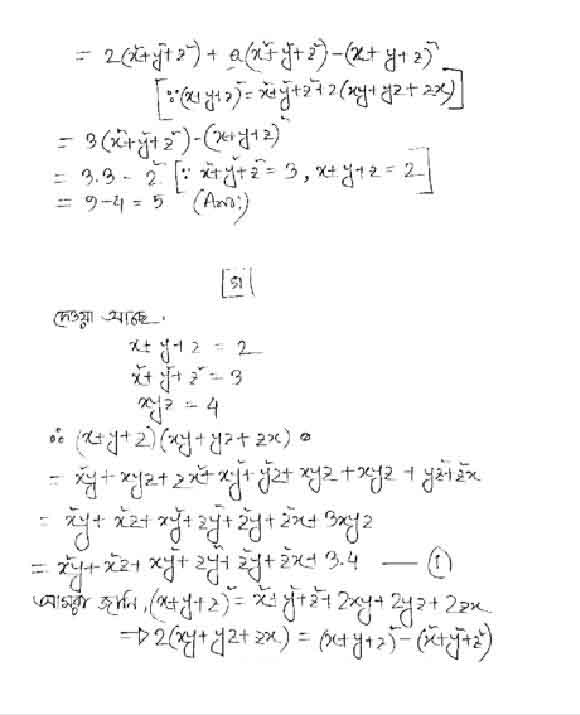 = 2(x²+y²+z²) + 2(x²+y²+z²) - (x+y+z)²
[∵(x+y+z)² = x²+y²+z²+2(xy+yz+zx)]
= 3(x²+y²+z²) - (x+y+z)²
= 3.3 - 2² [∵ x²+y²+z² = 3, x+y+z = 2]
= 9-4 = 5 (Ans:)
গ
দেওয়া আছে,
x+y+z = 2
x²+y²+z² = 3
xyz = 4
∴ (x+y+z)(xy+yz+zx)
= x²y+xyz+zx²+xy²+y²z+xyz+xyz+yz²+z²x
= x²y+x²z+xy²+zy²+z²y+z²x+3xyz
= x²y+x²z+xy²+zy²+z²y+z²x+3.4 — (1)
আমরা জানি, (x+y+z)² = x²+y²+z²+2xy+2yz+2zx
⇒ 2(xy+yz+zx) = (x+y+z)² - (x²+y²+z²)